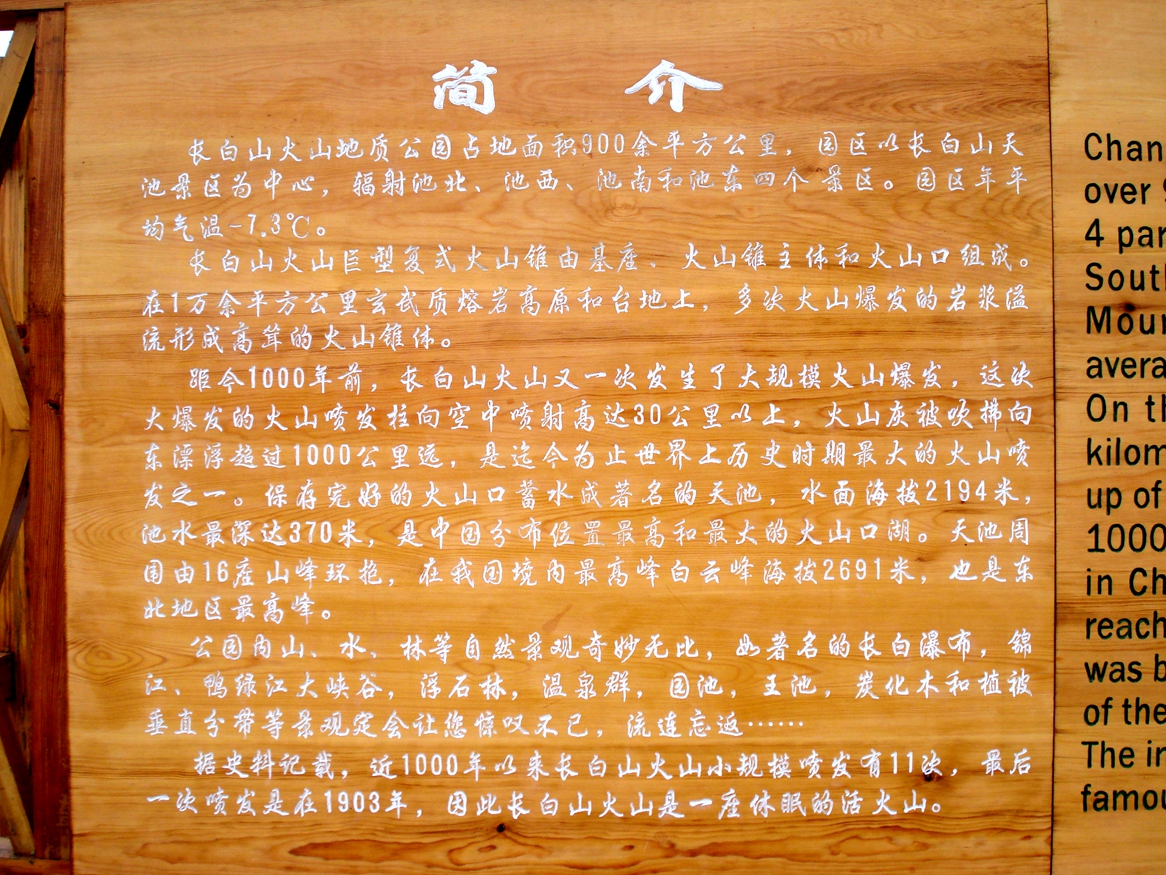 简 介
长白山火山地质公园占地面积900余平方公里，园区以长白山天
池景区为中心，辐射池北、池西、池南和池东四个景区。园区年平
均气温-7.3℃。
长白山火山巨型复式火山锥由基座、火山锥主体和火山口组成。
在1万余平方公里玄武质熔岩高原和台地上，多次火山爆发的岩浆溢
流形成高耸的火山锥体。
距今1000年前，长白山火山又一次发生了大规模火山爆发，这次
大爆发的火山喷发柱向空中喷射高达30公里以上，火山灰被吹拂向
东漂浮超过1000公里远，是迄今为止世界上历史时期最大的火山喷
发之一。保存完好的火山口蓄水成著名的天池，水面海拔2194米，
池水最深达370米，是中国分布位置最高和最大的火山口湖。天池周
围由16座山峰环抱，在我国境内最高峰白云峰海拔2691米，也是东
北地区最高峰。
公园内山、水、林等自然景观奇妙无比，如著名的长白瀑布，锦
江、鸭绿江大峡谷，浮石林，温泉群，园池，王池，炭化木和植被
垂直分带等景观定会让您惊叹不已，流连忘返……
据史料记载，近1000年以来长白山火山小规模喷发有11次，最后
一次喷发是在1903年，因此长白山火山是一座休眠的活火山。
Chan
over
4 par
Sout
Mour
avera
On th
kilom
up of
1000
in Ch
reach
was b
of the
The in
famou